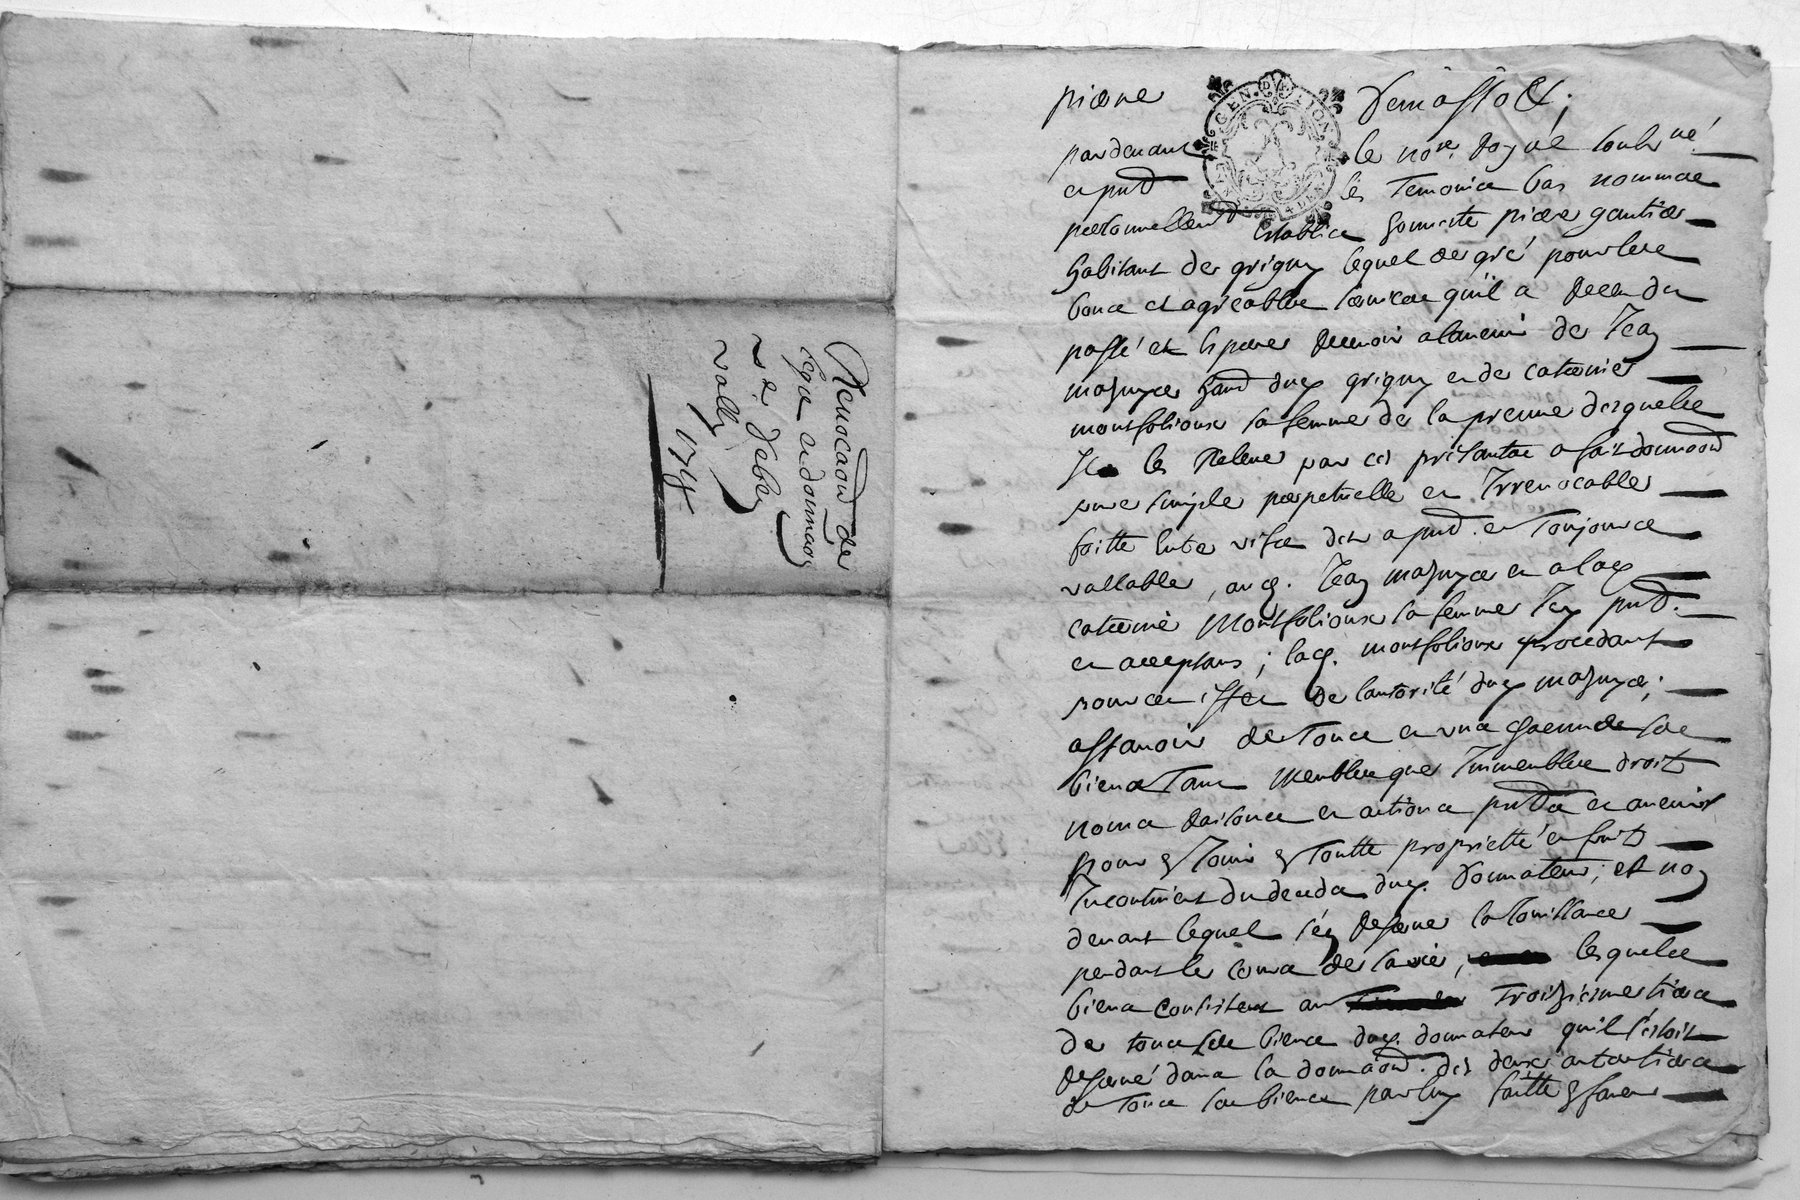 Revocaon de
legat et donnaon
valle
pierre
GEN. DE LION
pardevant le nore royal soubsne
et pnt les temoins bas nommes
personnellemt establi honneste pierre gautier
habitant de grigny lequel de gré pour les
bons et agreables services quil a receu du
passé et espere recevoir a lavenir de Jean
mazuyer habt dud grigny et de caterine
montfolioux sa femme de la preuve desquels
Il les Releve par ces presantes a fait donnaon
pure simple perpetuelle et Irrevocable
faitte entre vifs des a pnt et toujours
vallable, aud. Jean mazuyer et a lad
caterine Montfolioux sa femme Icy pnt.
et acceptans ; lad. montfolioux procedant
pour ce effet de lautorité dud mazuyer ;
assavoir de tous et uns chacuns ses
biens tant meubles que Immeubles droits
noms raisons et actions pnts et avenir
pour Jouir toutte proprietté et fruits
Incontinent du deceds dud. donnateur ; et non
devant lequel sen reserve la Jouissance
pendant le cours de sa vie, lesquels
biens consistent au troizieme tiers
de tous les biens dud. donnateur quil sestoit
reservé dans la donnaon des deux autres tiers
de tous ses biens par luy faitte en faveur